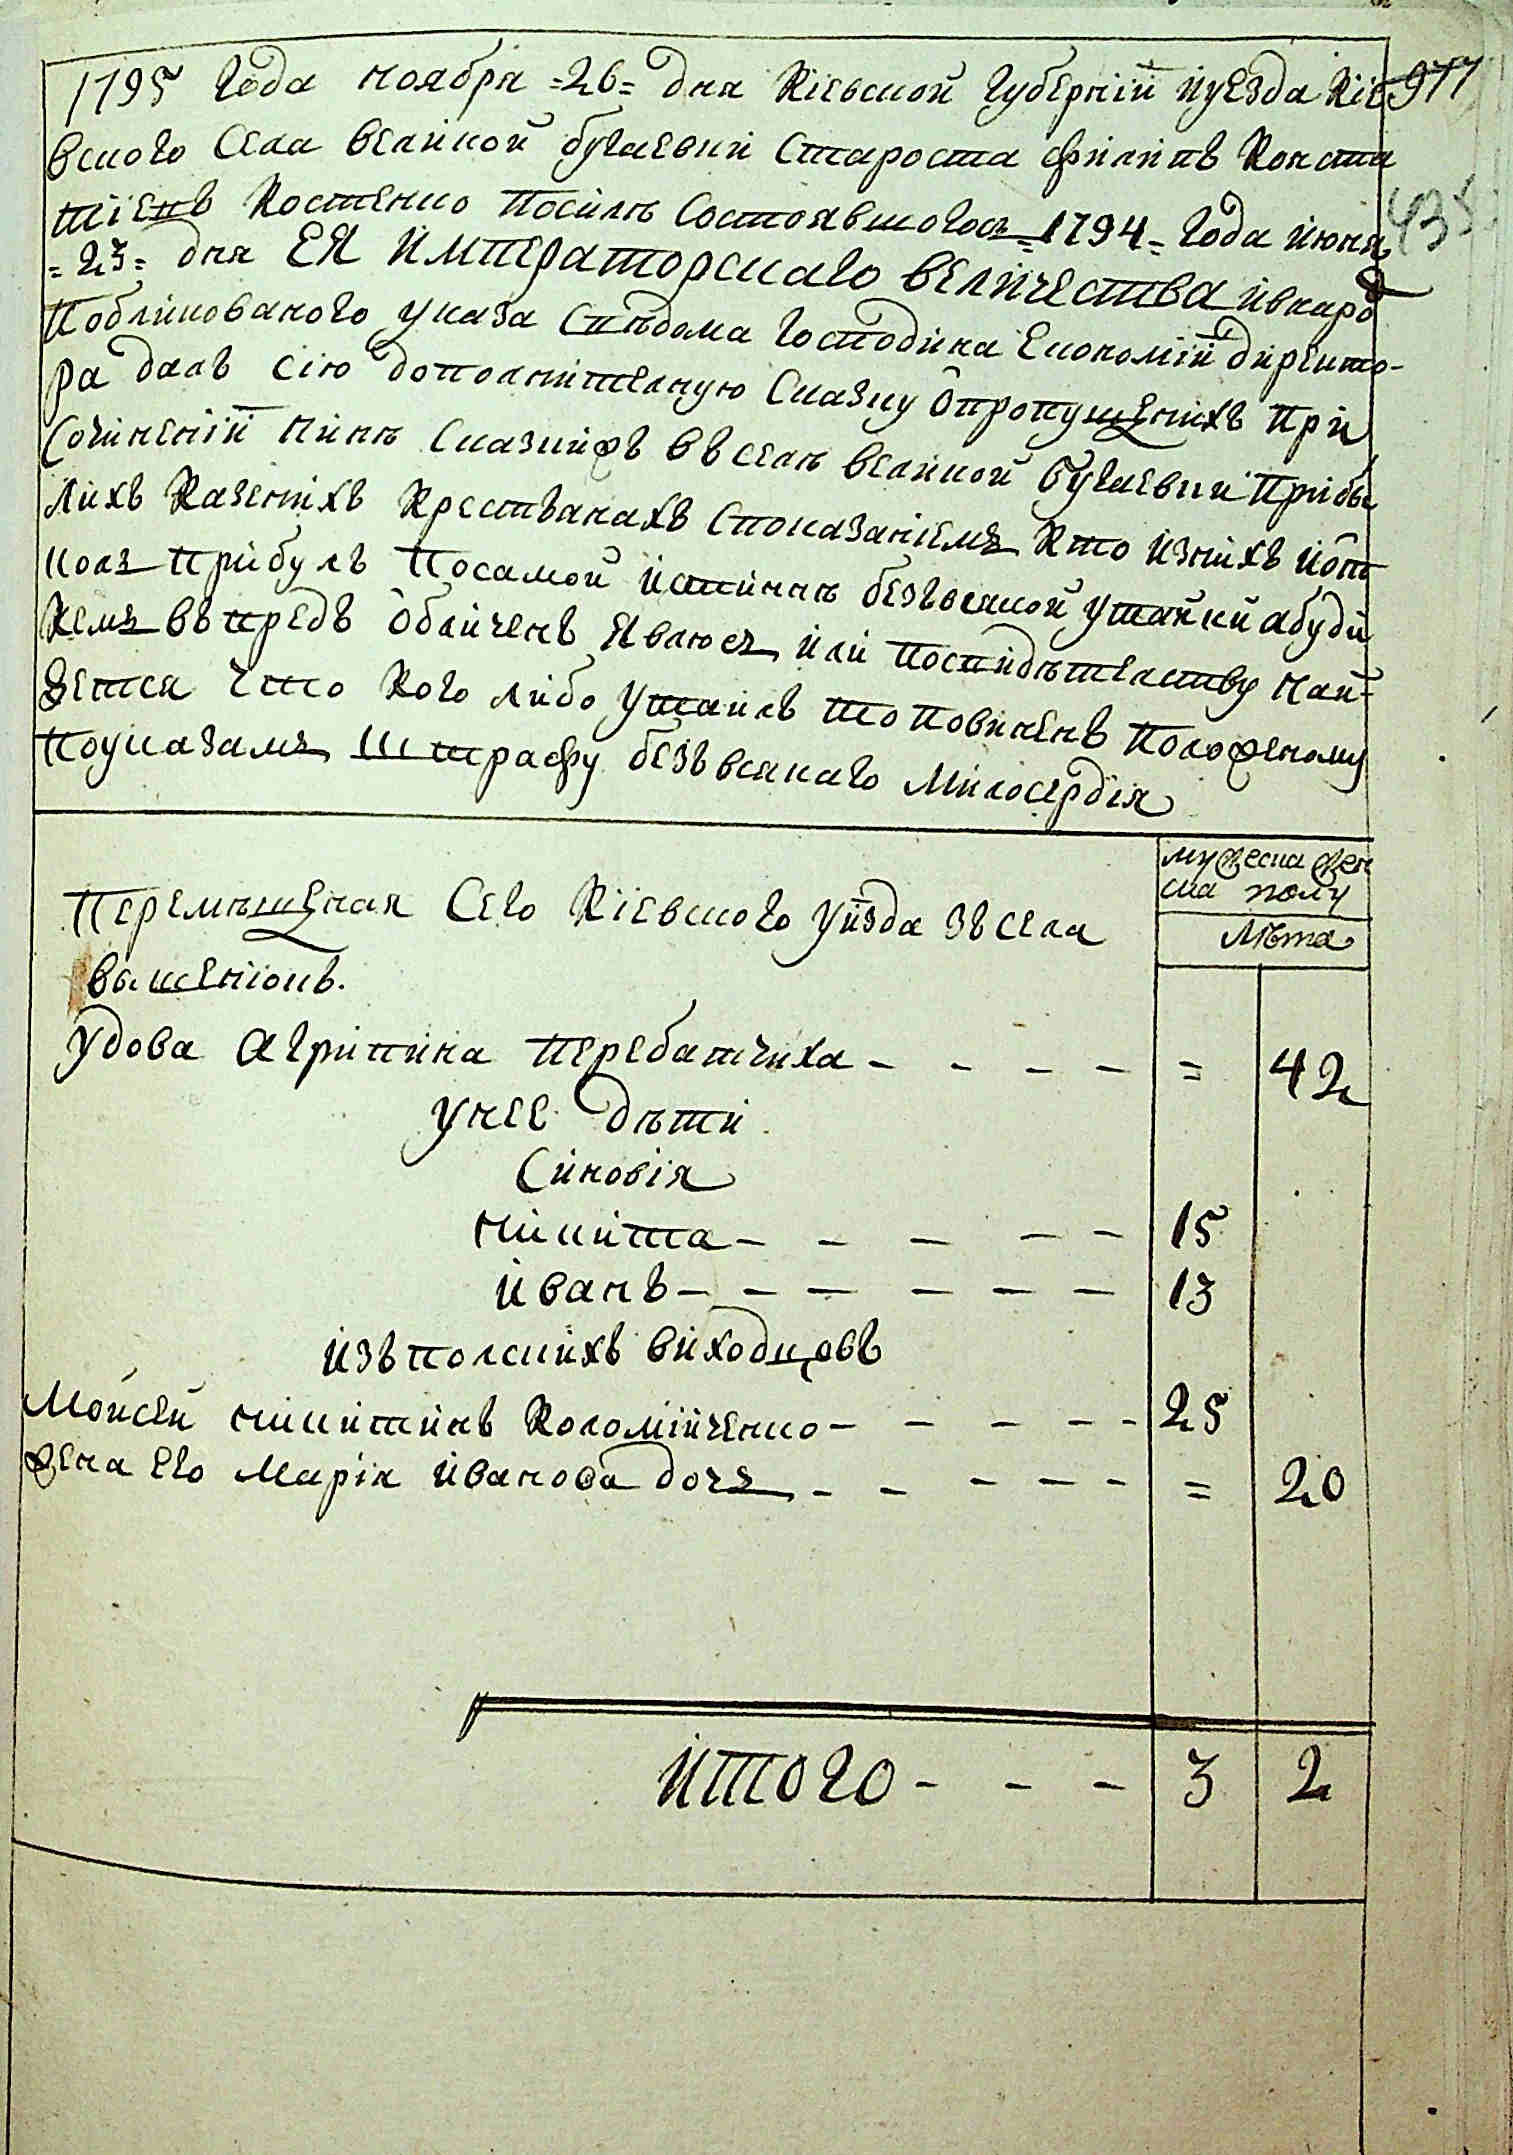 1795 года ноября =26= дня Кіевской губерніи и уезда Кіе 977
вского села великой бугаевки староста филипъ Конста
тіенъ Костенко посилѣ состоявшогось =1794= года июня 435
=23= дня ЕЯ ИМПЕРАТОРСКАГО ВЕЛИЧЕСТВА и внарод
поблікованого указа сведома господина Економіи директо-
ра далъ сію дополнителную сказку о пропущенихъ при
сочиненіи нинѣ сказикъ въ селѣ великой бугаевки прибы
лихъ казенихъ крестьянахъ споказаніемъ кто изнихъ и от
коль прибулъ посамой истиннѣ безъ всякой утайки а буди
кемъ въпредъ обличенъ явлюсь или поспидѣтелству най-
дется что кого либо утаилъ то повиненъ положеному
поуказамъ штрафу безъ всякаго милосердія
мужеска жен
ска полу
Лѣта
Перемѣщеная сего Кіевского уизда зъ села
Удова Агрипина Перебатчиха - - - - = 42
Унее дѣти
Синовія
никита - - - - - 15
иванъ - - - - - - 13
Изъ полскихъ виходцовъ
Мойсей никитинъ Коломійченко - - - - - 25
жена его Марія Иванова дочь - - - - - = 20
ИТОГО - - - 3 2